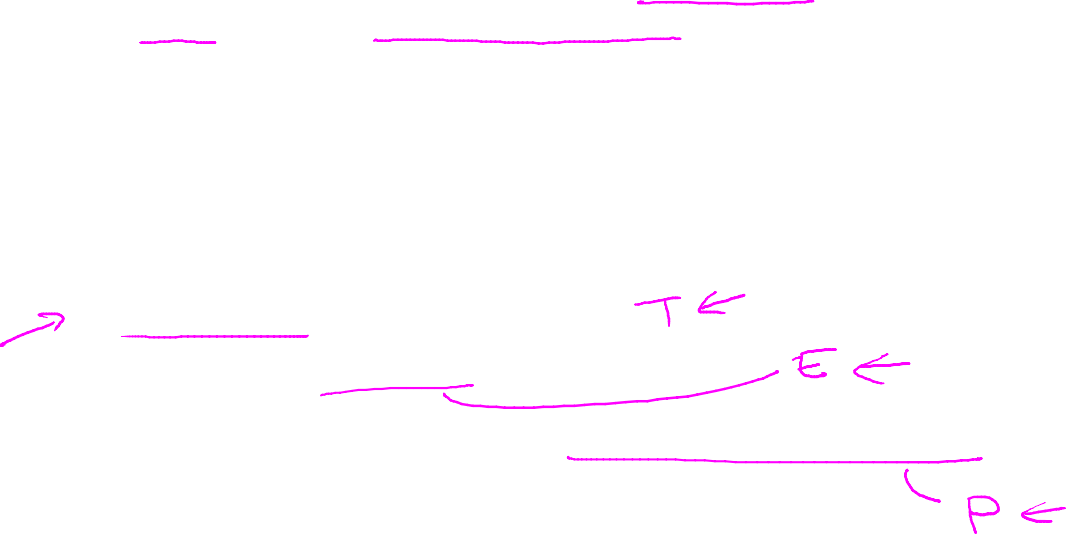 T
E
P